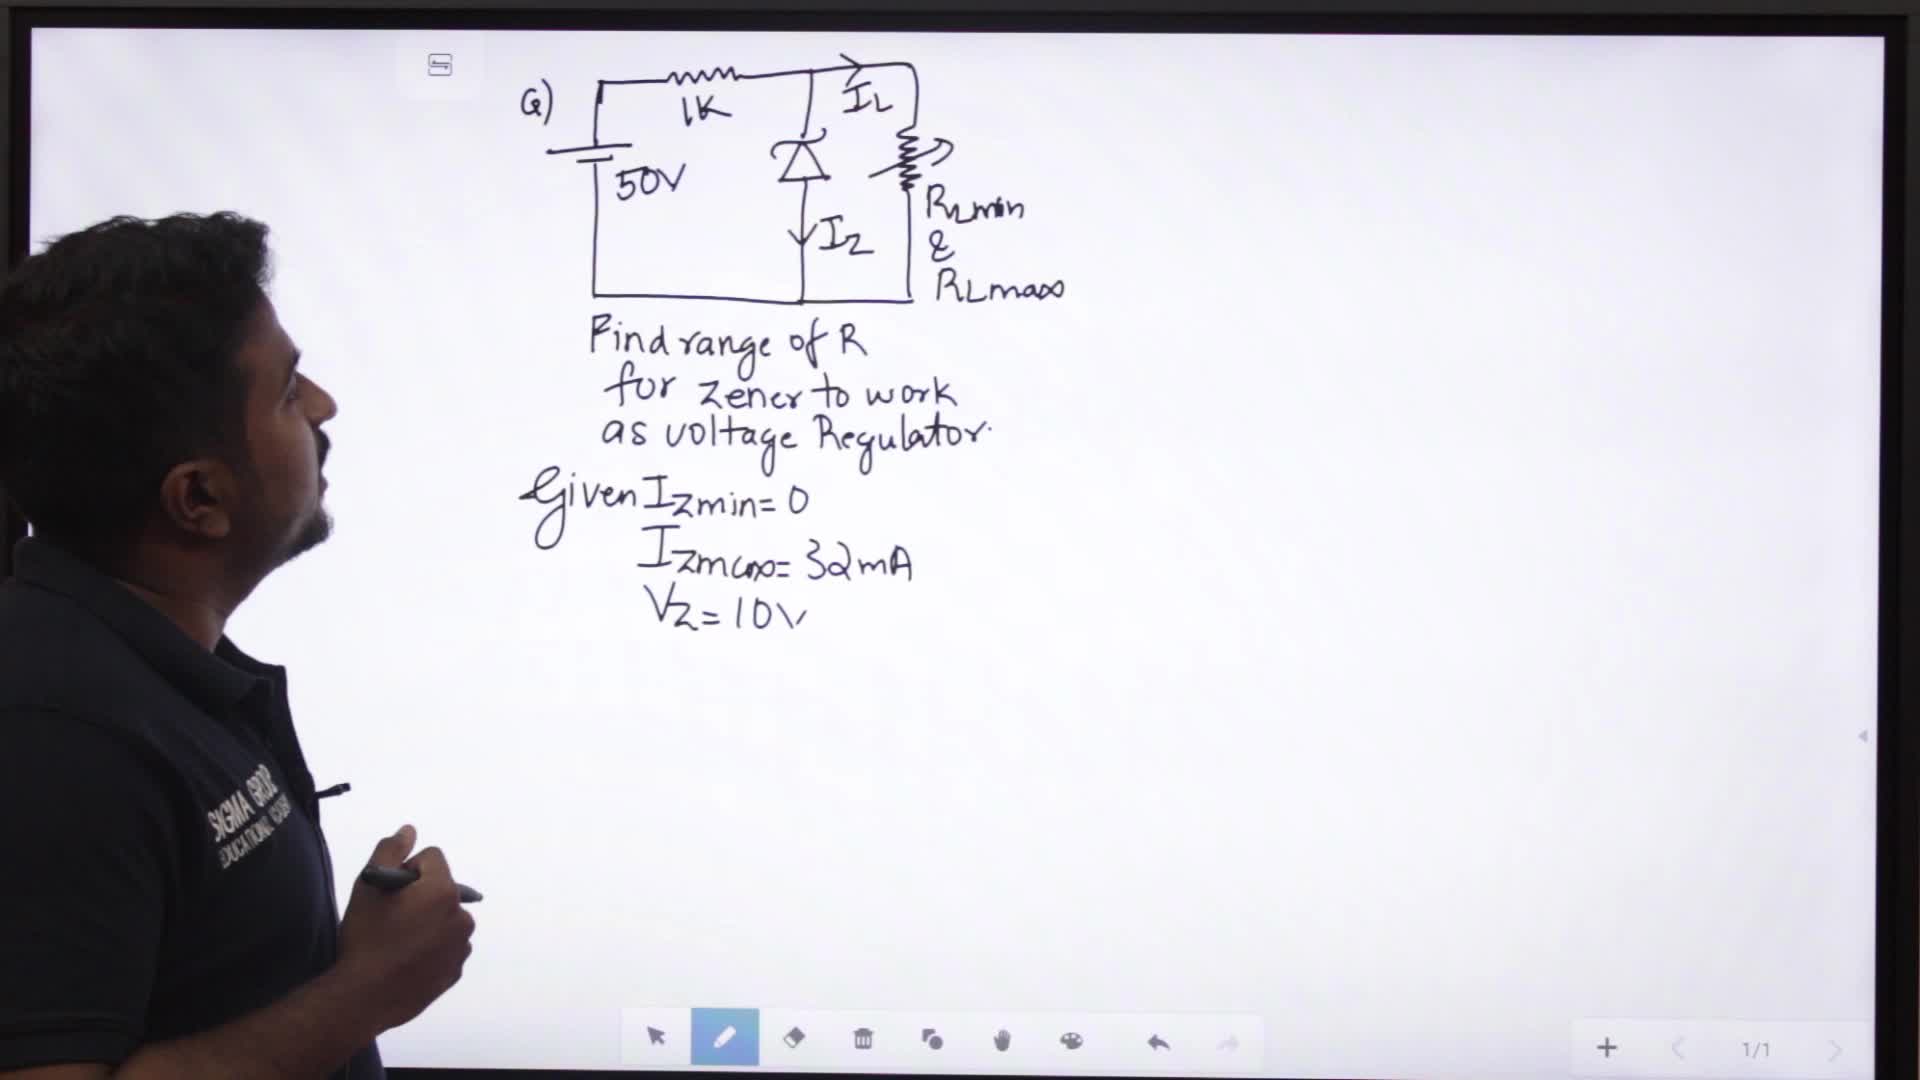 Q)
1K
IL
50V
IZ
RLmin
&
RLmax
Find range of R
for zener to work
as voltage Regulator.
Given IZmin= 0
IZmax= 32mA
VZ = 10V
SIGMA
EDUCATIONAL
1/1